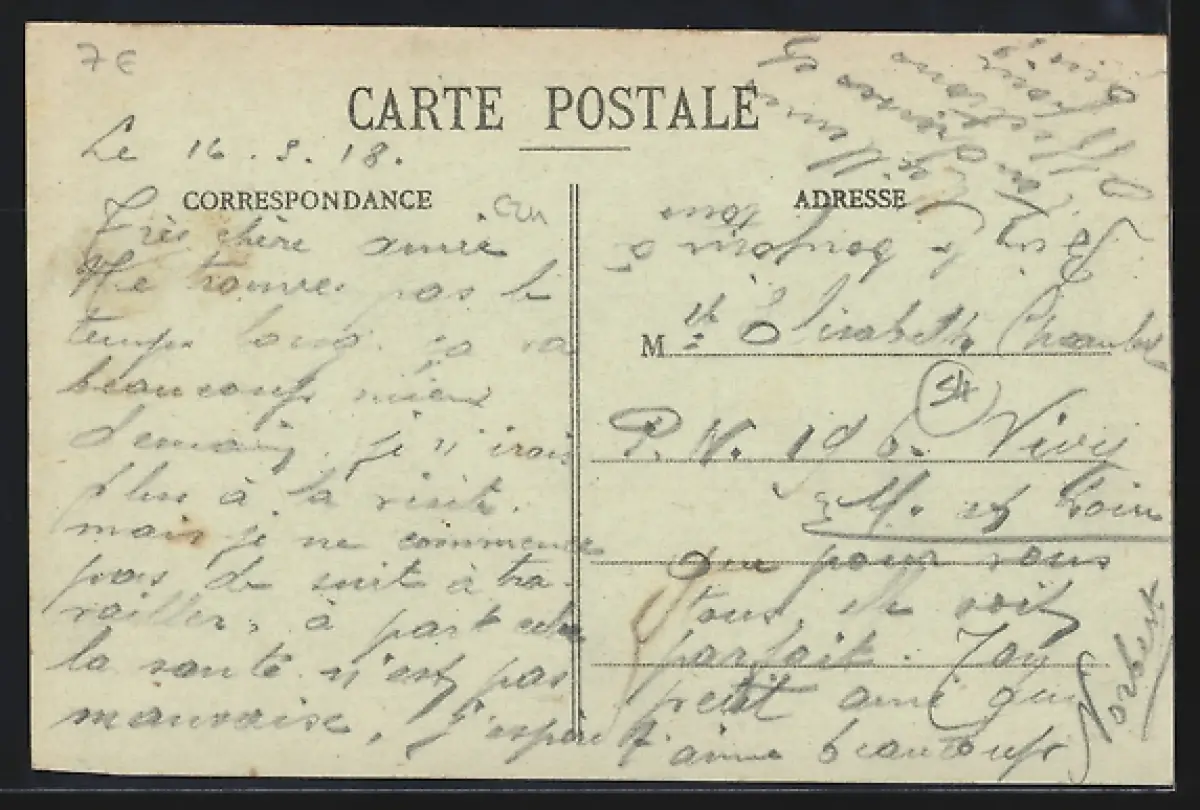 7€
CARTE POSTALE
Le 16.3.18.
CORRESPONDANCE
ADRESSE
Très chère amie
Ne trouves pas le
temps long. ça va
beaucoup mieux
demain, je n'irais
plus à la visite.
mais je ne commence
pas de suite à tra-
vailler, à part cela
la santé n'est pas
mauvaise, j'espère
que pour vous
tous, elle soit
parfait. Ton
petit ami qui
t'aime beaucoup
Norbert
bonjour à
tous
M lle Elisabeth
P. N. 1d6. Vivy
54
M. et Loire